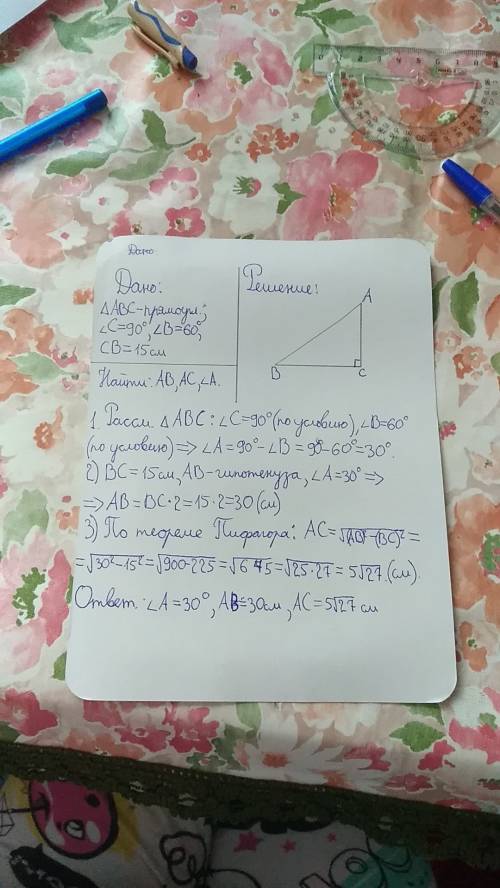 Дано
Дано:
△ABC-прямоуг.;
∠C=90°, ∠B=60°,
CB=15см
Найти: AB, AC, ∠A.
Решение:
A
B
C
1. Рассм. △ABC: ∠C=90° (по условию), ∠B=60°
(по условию) => ∠A=90°-∠B=90-60°=30°.
2) BC=15см, AB-гипотенуза, ∠A=30° =>
=> AB=BC·2=15·2=30 (см)
3) По теореме Пифагора: AC=√(AB)²-(BC)²=
=√30²-15²=√900-225=√675=√25·27=5√27 (см).
Ответ: ∠A=30°, AB=30см, AC=5√27 см